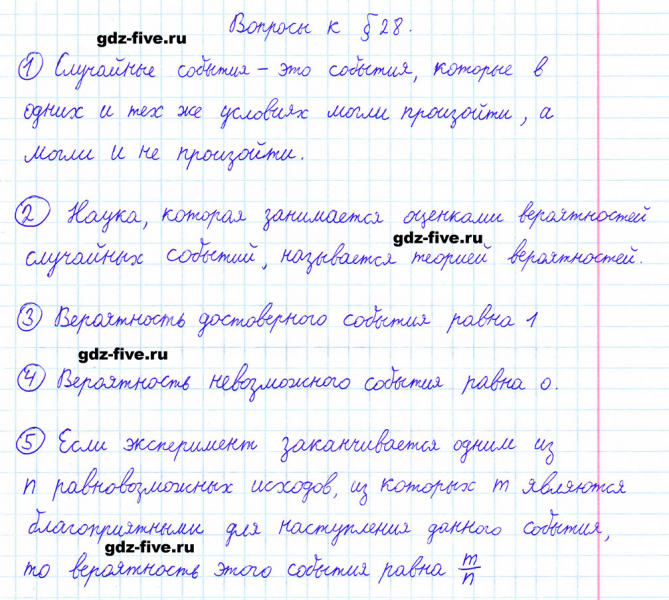 Вопросы к § 28.
gdz-five.ru
1 Случайные события – это события, которые в
одних и тех же условиях могли произойти, а
могли и не произойти.
2 Наука, которая занимается оценками вероятностей
gdz-five.ru
случайных событий, называется теорией вероятностей.
3 Вероятность достоверного события равна 1
gdz-five.ru
4 Вероятность невозможного события равна 0.
5 Если эксперимент заканчивается одним из
n равновозможных исходов, из которых m являются
благоприятными для наступления данного события,
gdz-five.ru
то вероятность этого события равна m/n